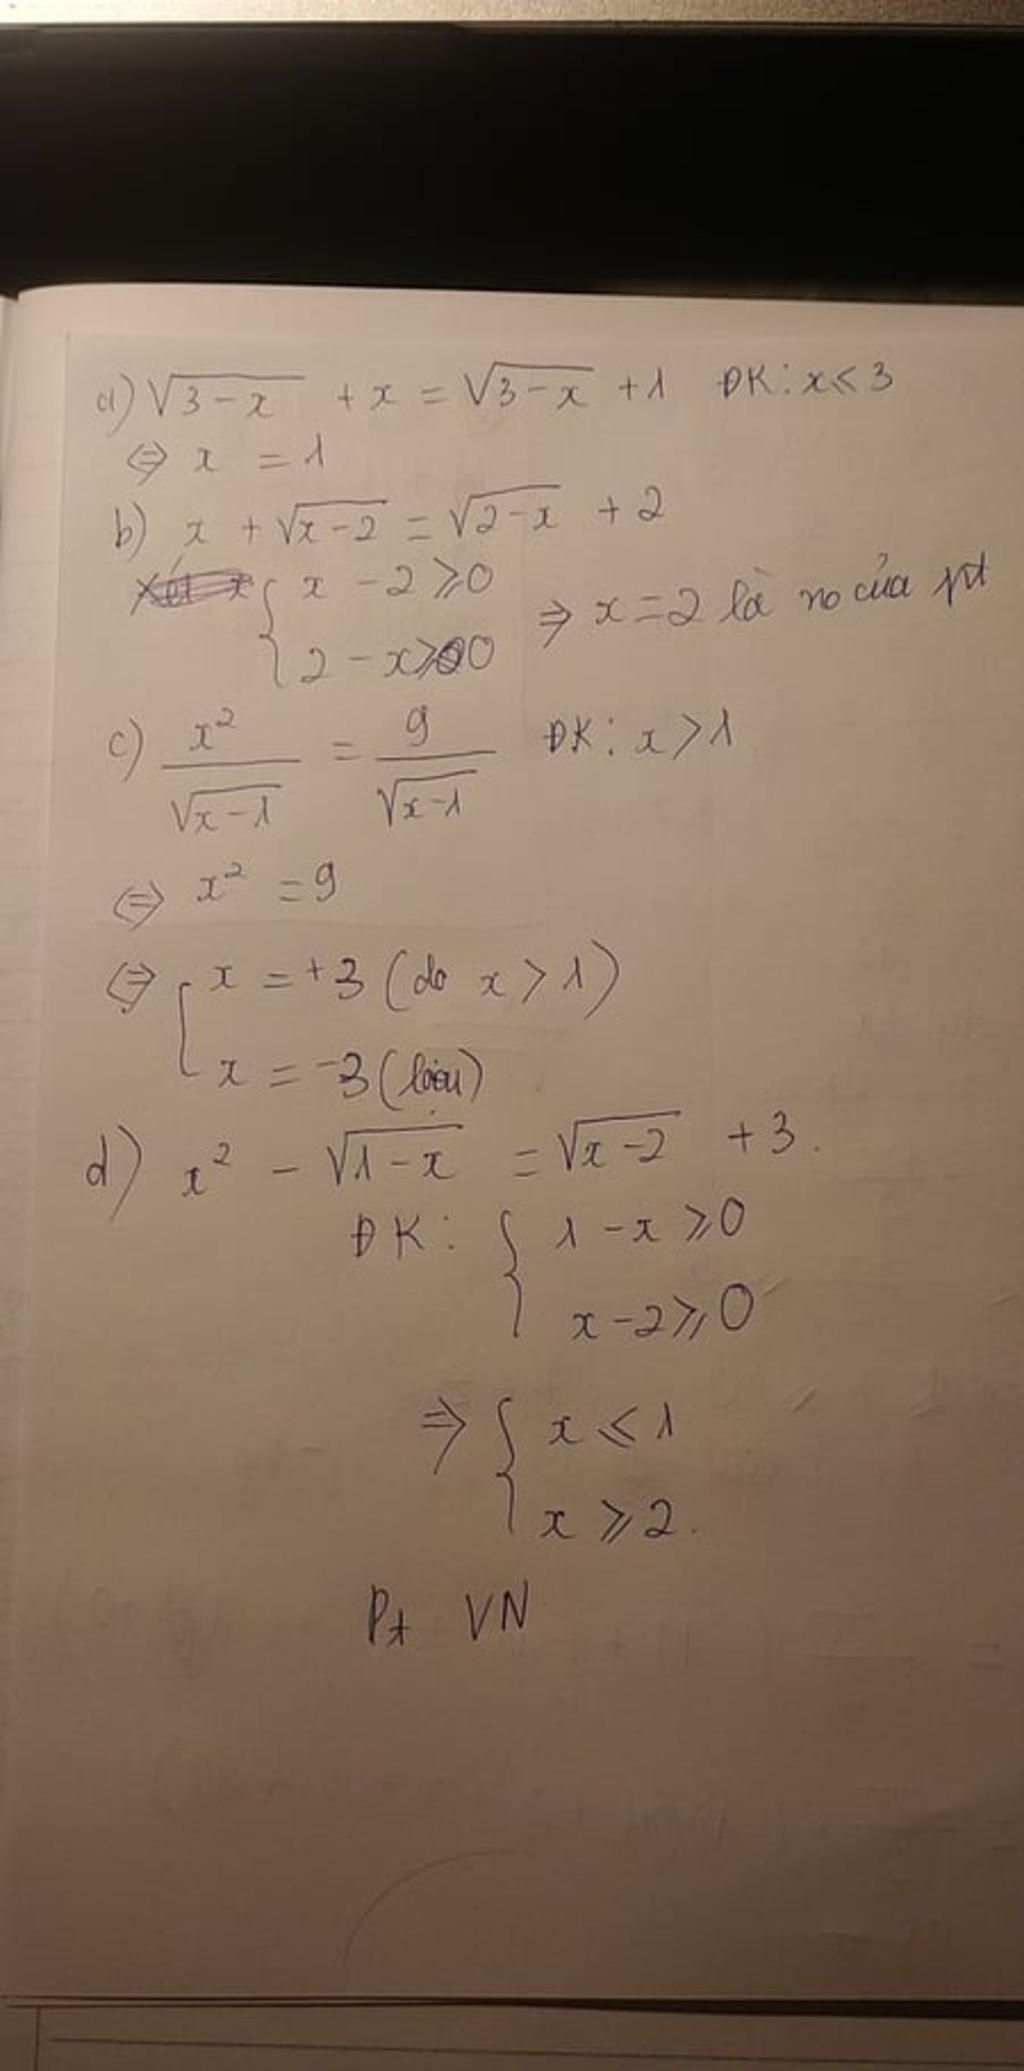 a) √(3-x) + x = √(3-x) + 1 ĐK: x ≤ 3
⇔ x = 1
b) x + √(x-2) = √(2-x) + 2
{ x - 2 ⩾ 0
2 - x ⩾ 0 ⇒ x = 2 là no của pt
c) x²/√(x-1) = 9/√(x-1) ĐK: x > 1
⇔ x² = 9
⇔ [ x = +3 (do x > 1)
x = -3 (loại)
d) x² - √(1-x) = √(x-2) + 3.
ĐK: { 1 - x ⩾ 0
x - 2 ⩾ 0
⇒ { x ⩽ 1
x ⩾ 2.
Pt VN